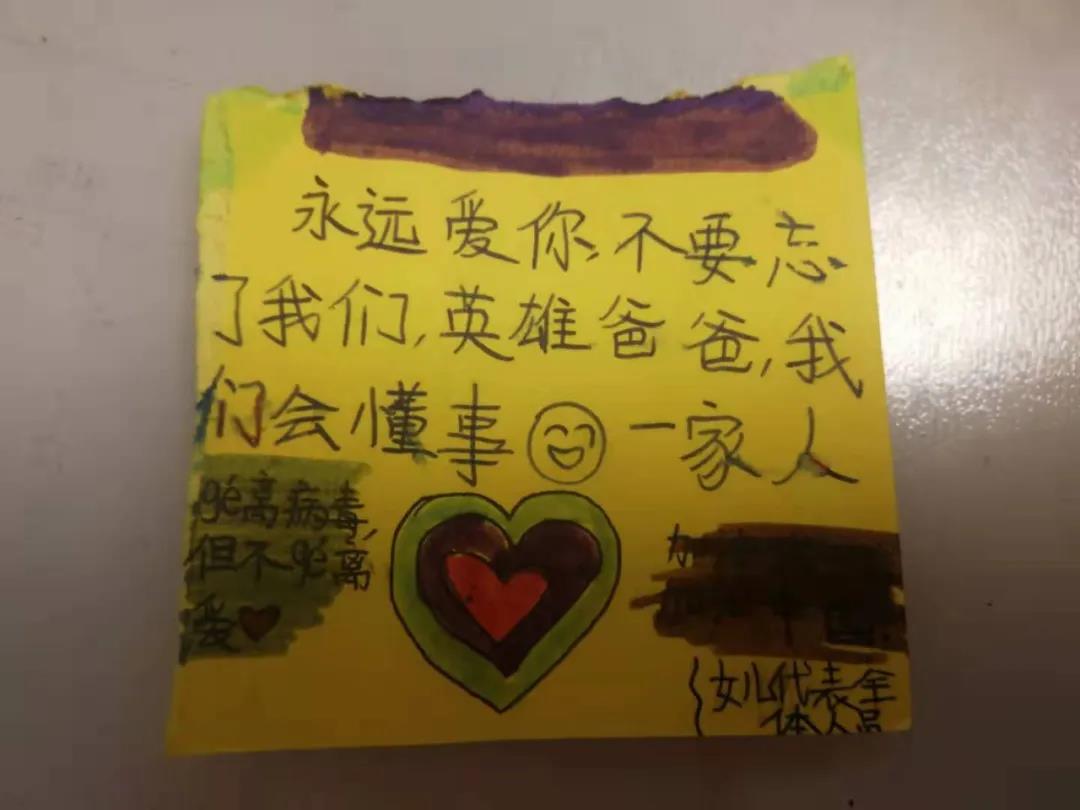 永远爱你,不要忘
了我们,英雄爸爸,我
们会懂事 一家人
gé离病毒,
但不gé离
爱
女儿代表全
体人员